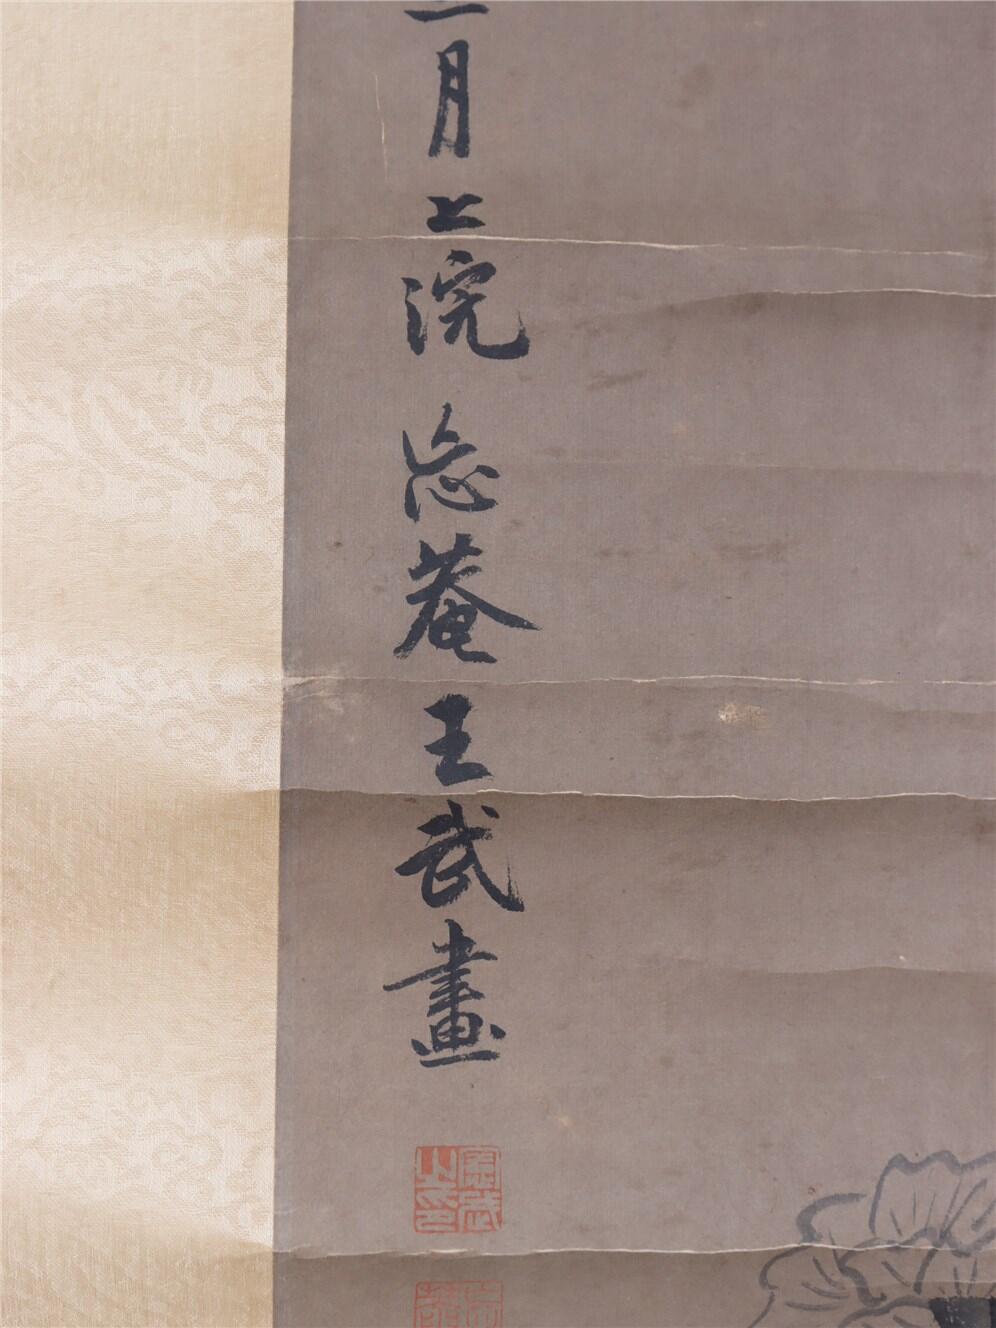 月上浣忘菴王武畫